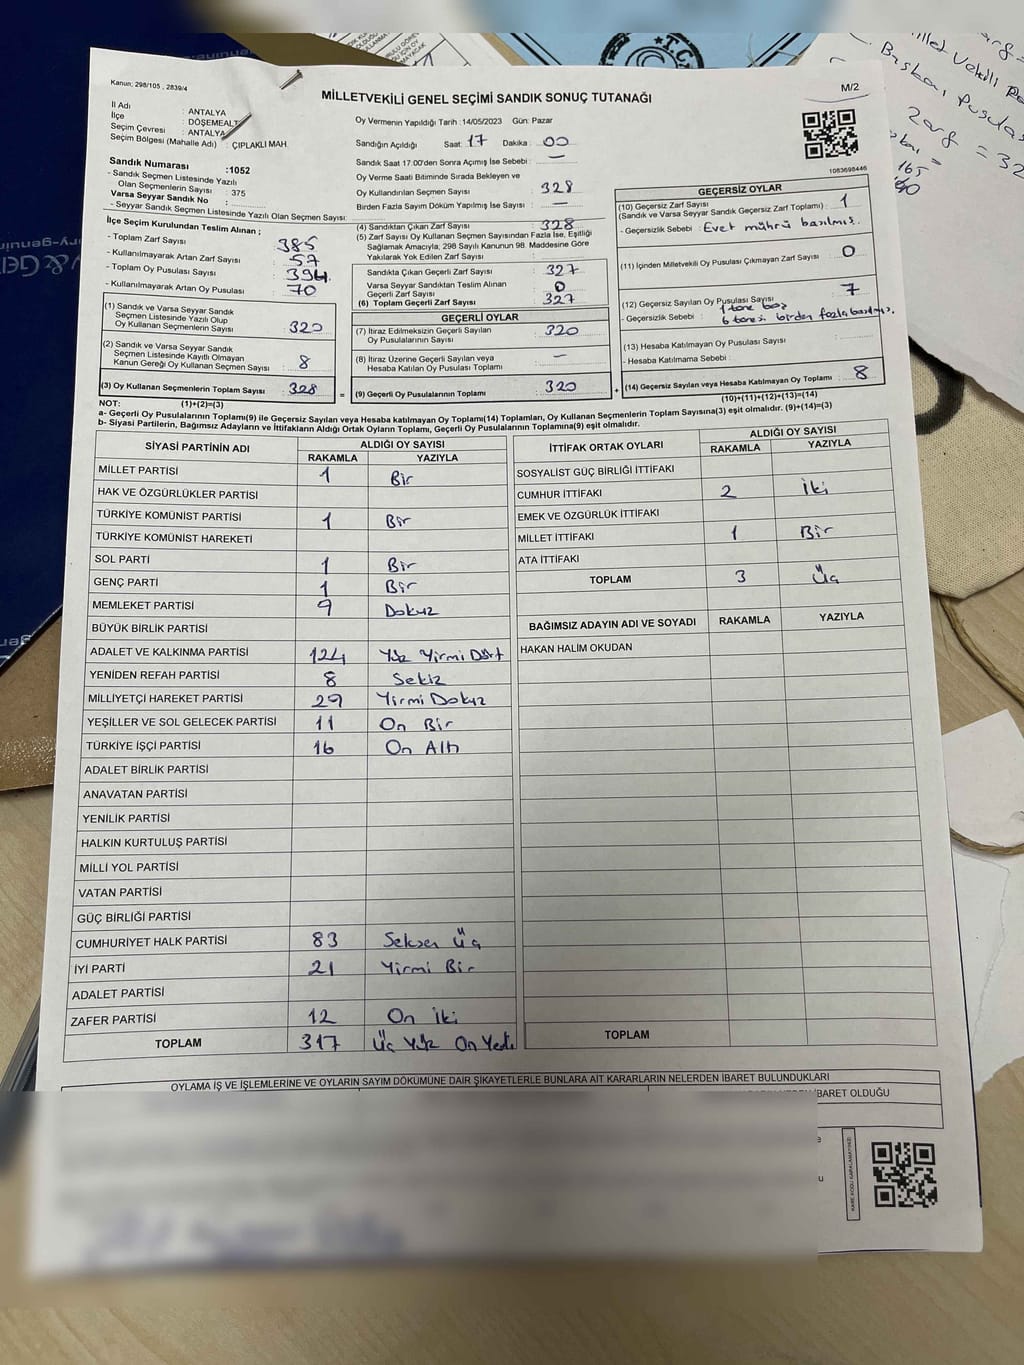 Kanun; 298/105 , 2839/4
MİLLETVEKİLİ GENEL SEÇİMİ SANDIK SONUÇ TUTANAĞI
M/2
İl Adı : ANTALYA
İlçe : DÖŞEMEALTI
Seçim Çevresi : ANTALYA
Seçim Bölgesi (Mahalle Adı) : ÇIPLAKLI MAH.
Sandık Numarası :1052
- Sandık Seçmen Listesinde Yazılı
Olan Seçmenlerin Sayısı : 375
Varsa Seyyar Sandık No :
- Seyyar Sandık Seçmen Listesinde Yazılı Olan Seçmen Sayısı:
İlçe Seçim Kurulundan Teslim Alınan ;
- Toplam Zarf Sayısı : 385
- Kullanılmayarak Artan Zarf Sayısı : 57
- Toplam Oy Pusulası Sayısı : 394
- Kullanılmayarak Artan Oy Pusulası : 70
(1) Sandık ve Varsa Seyyar Sandık
Seçmen Listesinde Yazılı Olup
Oy Kullanan Seçmenlerin Sayısı : 320
(2) Sandık ve Varsa Seyyar Sandık
Seçmen Listesinde Kayıtlı Olmayan
Kanun Gereği Oy Kullanan Seçmen Sayısı : 8
(3) Oy Kullanan Seçmenlerin Toplam Sayısı : 328
(1)+(2)=(3)
Oy Vermenin Yapıldığı Tarih :14/05/2023 Gün: Pazar
Sandığın Açıldığı Saat: 17 Dakika : 00
Sandık Saat 17:00'den Sonra Açımış İse Sebebi : —
Oy Verme Saati Bitiminde Sırada Bekleyen ve
Oy Kullandırılan Seçmen Sayısı : 328
Birden Fazla Sayım Döküm Yapılmış İse Sayısı : —
(4) Sandıktan Çıkan Zarf Sayısı : 328
(5) Zarf Sayısı Oy Kullanan Seçmen Sayısından Fazla İse, Eşitliği
Sağlamak Amacıyla, 298 Sayılı Kanunun 98. Maddesine Göre
Yakılarak Yok Edilen Zarf Sayısı :
Sandıkta Çıkan Geçerli Zarf Sayısı : 327
Varsa Seyyar Sandıktan Teslim Alınan
Geçerli Zarf Sayısı : 0
(6) Toplam Geçerli Zarf Sayısı : 327
GEÇERLİ OYLAR
(7) İtiraz Edilmeksizin Geçerli Sayılan
Oy Pusulalarının Sayısı : 320
(8) İtiraz Üzerine Geçerli Sayılan veya
Hesaba Katılan Oy Pusulası Toplamı : —
= (9) Geçerli Oy Pusulalarının Toplamı : 320 +
1063698446
GEÇERSİZ OYLAR
(10) Geçersiz Zarf Sayısı : 1
(Sandık ve Varsa Seyyar Sandık Geçersiz Zarf Toplamı)
- Geçersizlik Sebebi : Evet mührü basılmış.
(11) İçinden Milletvekili Oy Pusulası Çıkmayan Zarf Sayısı : 0
(12) Geçersiz Sayılan Oy Pusulası Sayısı : 7
- Geçersizlik Sebebi : 1 tane boş
6 tanesi birden fazla basılmış.
(13) Hesaba Katılmayan Oy Pusulası Sayısı :
- Hesaba Katılmama Sebebi :
(14) Geçersiz Sayılan veya Hesaba Katılmayan Oy Toplamı : 8
(10)+(11)+(12)+(13)=(14)
NOT:
a- Geçerli Oy Pusulalarının Toplamı(9) ile Geçersiz Sayılan veya Hesaba katılmayan Oy Toplamı(14) Toplamları, Oy Kullanan Seçmenlerin Toplam Sayısına(3) eşit olmalıdır. (9)+(14)=(3)
b- Siyasi Partilerin, Bağımsız Adayların ve İttifakların Aldığı Ortak Oyların Toplamı, Geçerli Oy Pusulalarının Toplamına(9) eşit olmalıdır.
SİYASİ PARTİNİN ADI ALDIĞI OY SAYISI
RAKAMLA YAZIYLA
MİLLET PARTİSİ 1 Bir
HAK VE ÖZGÜRLÜKLER PARTİSİ
TÜRKİYE KOMÜNİST PARTİSİ 1 Bir
TÜRKİYE KOMÜNİST HAREKETİ
SOL PARTİ 1 Bir
GENÇ PARTİ 1 Bir
MEMLEKET PARTİSİ 9 Dokuz
BÜYÜK BİRLİK PARTİSİ
ADALET VE KALKINMA PARTİSİ 124 Yüz Yirmi Dört
YENİDEN REFAH PARTİSİ 8 Sekiz
MİLLİYETÇİ HAREKET PARTİSİ 29 Yirmi Dokuz
YEŞİLLER VE SOL GELECEK PARTİSİ 11 On Bir
TÜRKİYE İŞÇİ PARTİSİ 16 On Altı
ADALET BİRLİK PARTİSİ
ANAVATAN PARTİSİ
YENİLİK PARTİSİ
HALKIN KURTULUŞ PARTİSİ
MİLLİ YOL PARTİSİ
VATAN PARTİSİ
GÜÇ BİRLİĞİ PARTİSİ
CUMHURİYET HALK PARTİSİ 83 Seksen Üç
İYİ PARTİ 21 Yirmi Bir
ADALET PARTİSİ
ZAFER PARTİSİ 12 On İki
TOPLAM 317 Üç Yüz On Yedi
İTTİFAK ORTAK OYLARI ALDIĞI OY SAYISI
RAKAMLA YAZIYLA
SOSYALİST GÜÇ BİRLİĞİ İTTİFAKI
CUMHUR İTTİFAKI 2 İki
EMEK VE ÖZGÜRLÜK İTTİFAKI
MİLLET İTTİFAKI 1 Bir
ATA İTTİFAKI
TOPLAM 3 Üç
BAĞIMSIZ ADAYIN ADI VE SOYADI RAKAMLA YAZIYLA
HAKAN HALİM OKUDAN
TOPLAM
OYLAMA İŞ VE İŞLEMLERİNE VE OYLARIN SAYIM DÖKÜMÜNE DAİR ŞİKAYETLERLE BUNLARA AİT KARARLARIN NELERDEN İBARET BULUNDUKLARI
İBARET OLDUĞU